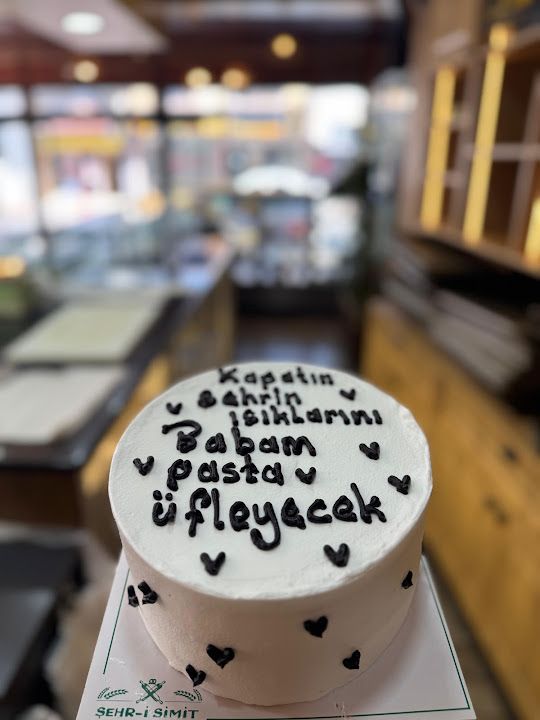 Kapatın
şehrin
ışıklarını
Babam
pasta
üfleyecek
ŞEHR-İ SİMİT